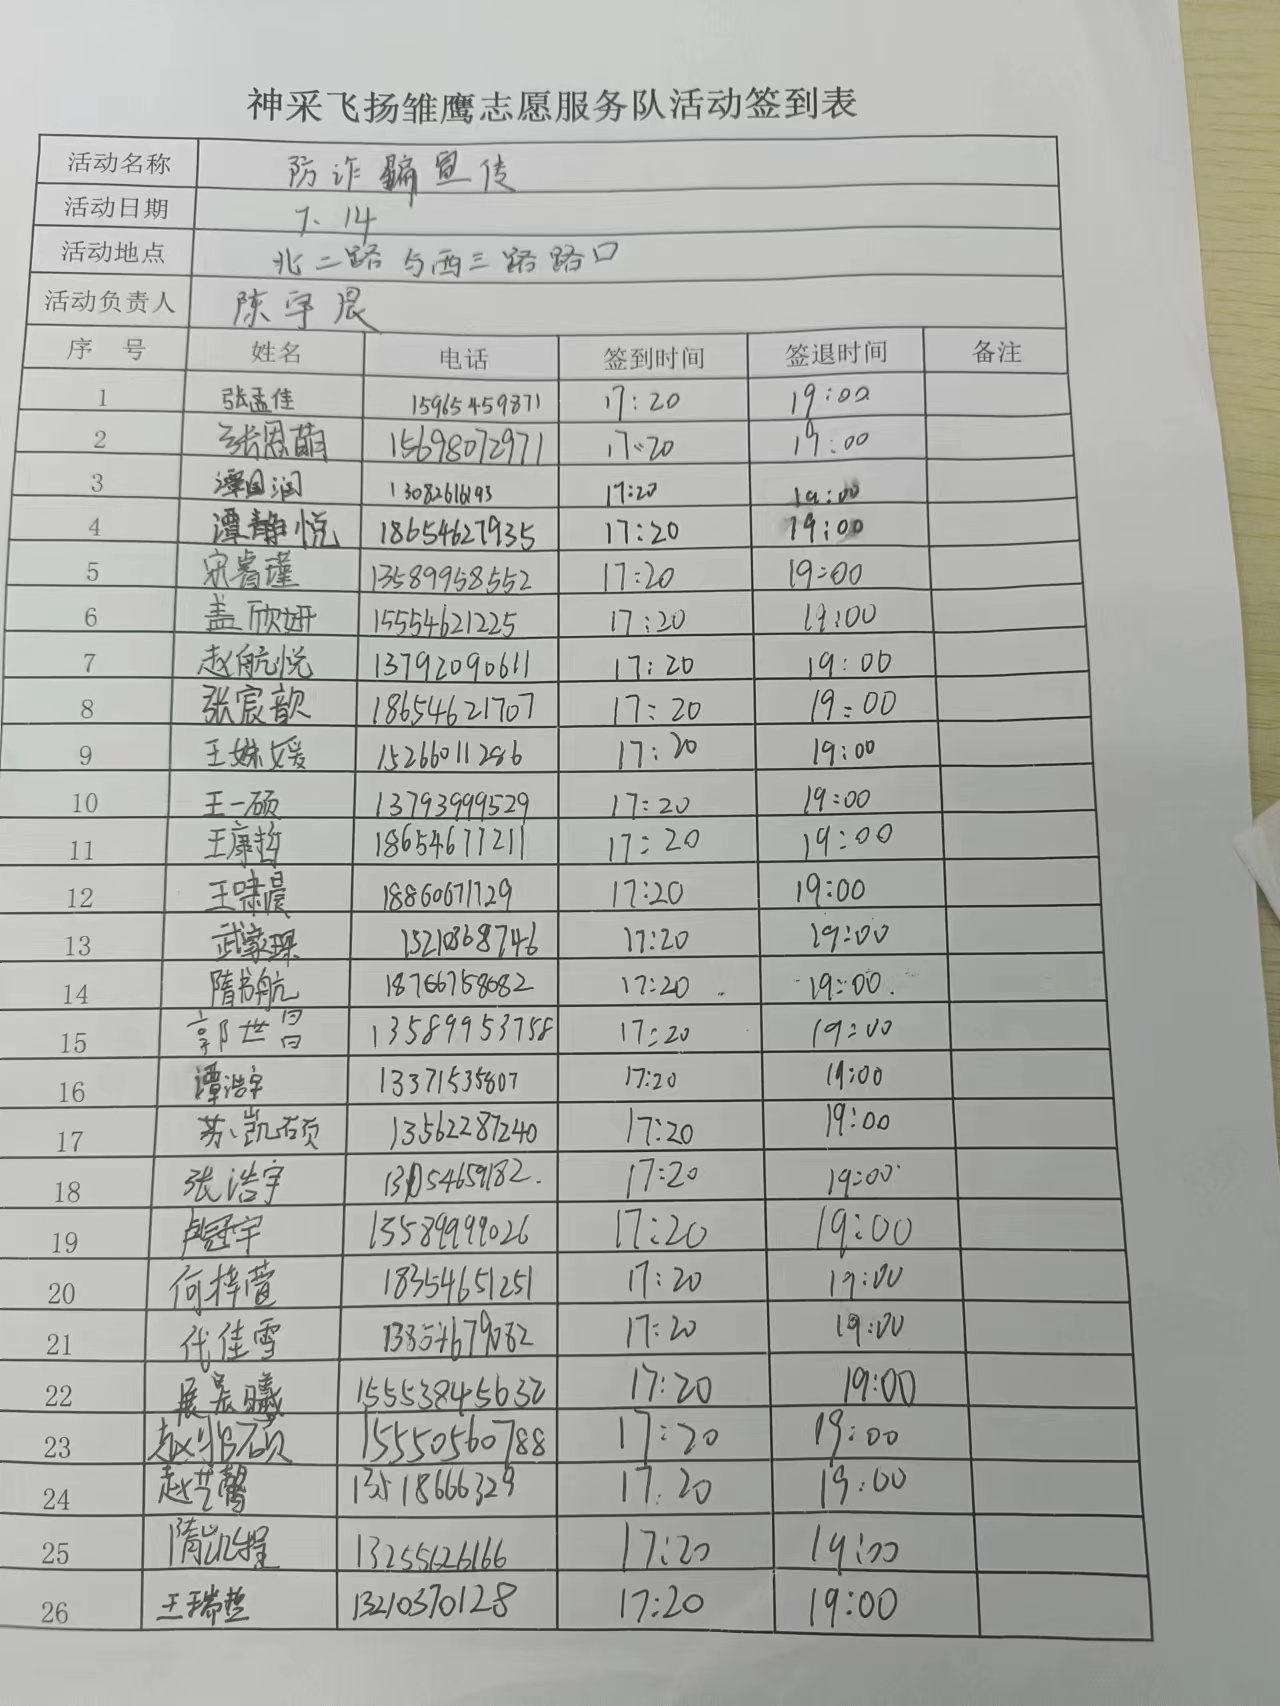 神采飞扬雏鹰志愿服务队活动签到表
活动名称 防诈骗宣传
活动日期 7.14
活动地点 北二路与西三路路口
活动负责人 陈宇晨
序号 姓名 电话 签到时间 签退时间 备注
1 张孟佳 15965459871 17:20 19:00
2 张恩萌 15698072971 17:20 19:00
3 谭国润 13082616193 17:20 19:00
4 谭静悦 18654627935 17:20 19:00
5 宋睿瑾 13589958552 17:20 19:00
6 盖欣妍 15554621225 17:20 19:00
7 赵航悦 13792090611 17:20 19:00
8 张宸歆 18654621707 17:20 19:00
9 王姝媛 15266011286 17:20 19:00
10 王一硕 13793999529 17:20 19:00
11 王康哲 18654671211 17:20 19:00
12 王啸晨 18860671729 17:20 19:00
13 武家琛 15210868746 17:20 19:00
14 隋书航 18766758682 17:20 19:00
15 郭世昌 13589953758 17:20 19:00
16 谭浩宇 13371535807 17:20 19:00
17 苏凯硕 13562287240 17:20 19:00
18 张浩宇 17:20 19:00
19 卢冠宇 13589999026 17:20 19:00
20 何梓萱 18354651251 17:20 19:00
21 代佳雪 13854679082 17:20 19:00
22 展昊曦 15553845632 17:20 19:00
23 15550560788 17:20 19:00
24 赵芝馨 17:20 19:00
25 隋凯程 13255626166 17:20 19:00
26 王瑞哲 13210370128 17:20 19:00